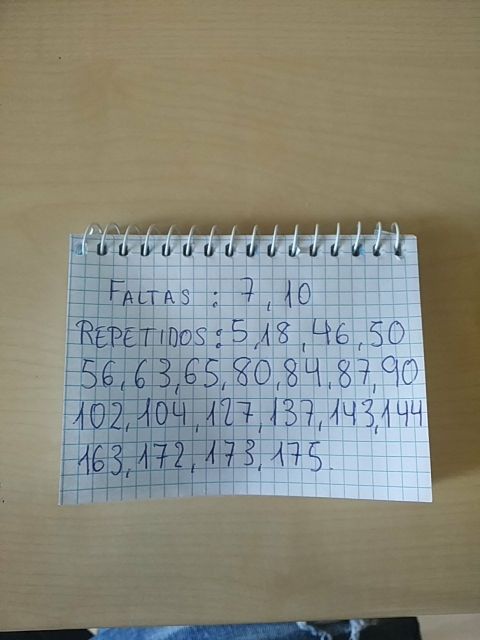 FALTAS : 7, 10
REPETIDOS : 5, 18, 46, 50
56, 63, 65, 80, 84, 87, 90
102, 104, 127, 137, 143, 144
163, 172, 173, 175.